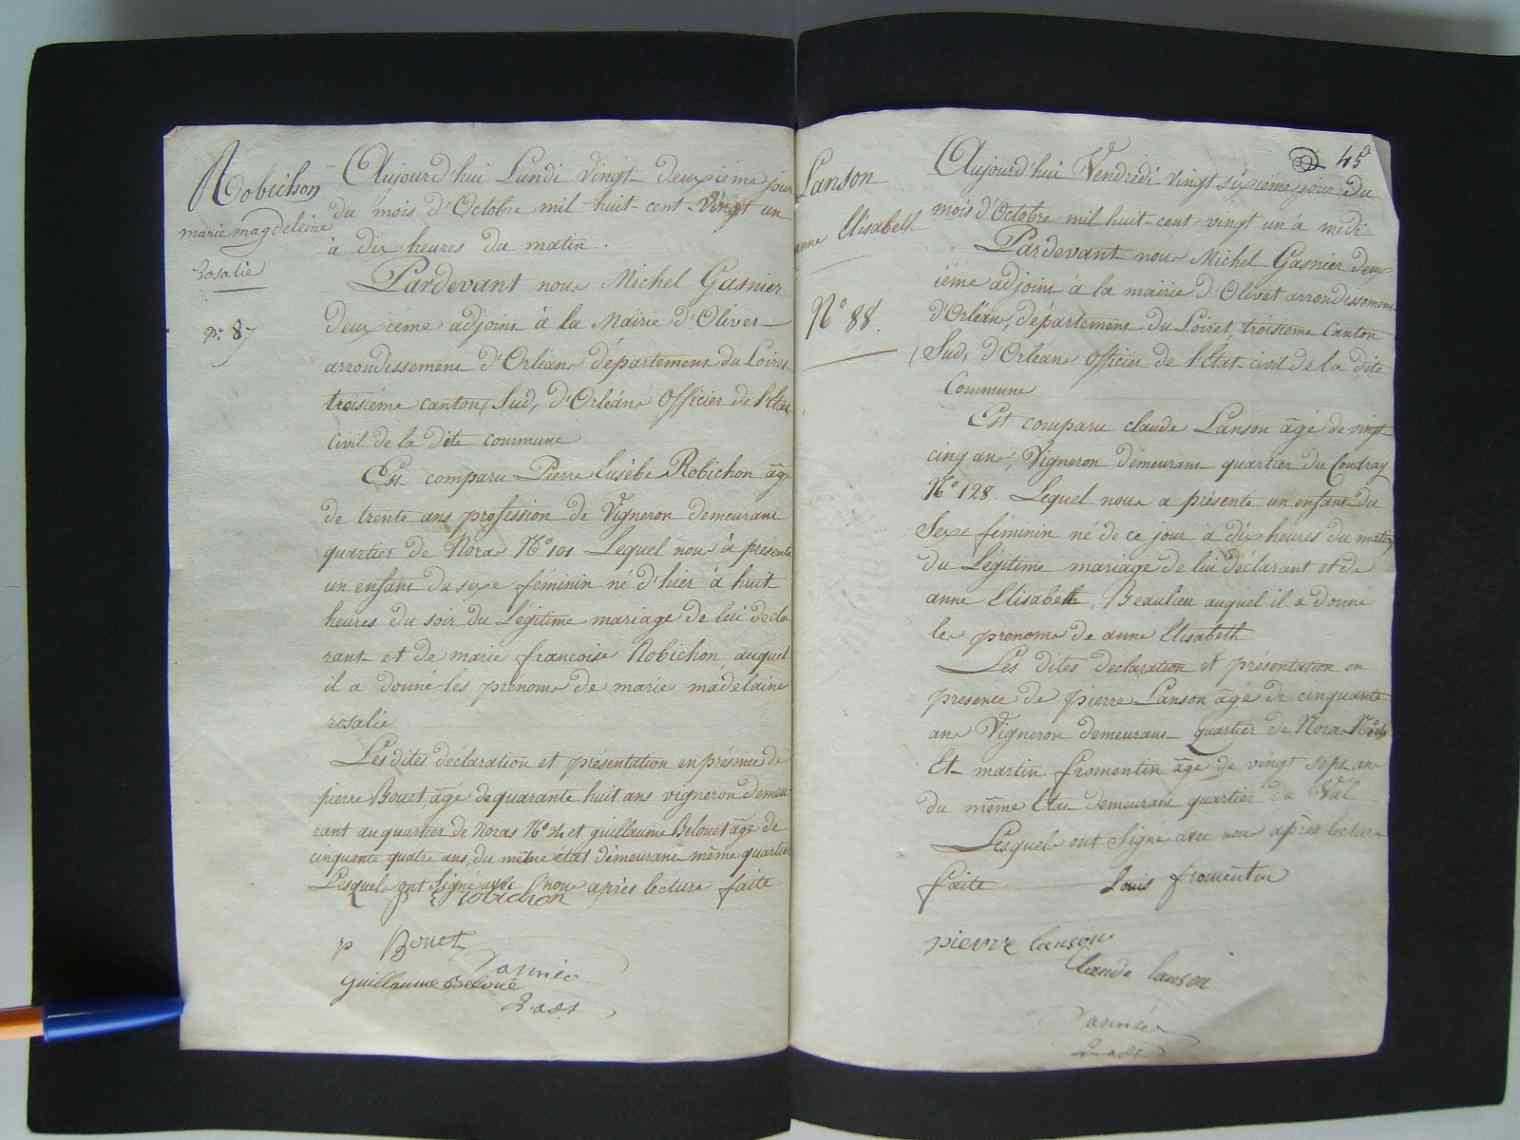 Robichon
marie magdeleine
Rosalie
Aujourd'hui Lundi vingt-deuxième jour
du mois d'Octobre mil huit-cent-vingt un
à dix heures du matin.
Pardevant nous Michel Gasnier
deuxieme adjoint à la Mairie d'Olivet
arrondissement d'Orléans département du Loiret
troisième canton, Sud, d'Orléans Officier de l'Etat
civil de la dite commune
Est comparu Pierre Eusèbe Robichon âgé
de trente ans profession de Vigneron demeurant
quartier de Nora N° 101 Lequel nous à présenté
un enfant du sexe féminin né d'hier à huit
heures du soir du Légitime mariage de lui décla
rant et de marie françoise Robichon auquel
il a donné les prénoms de marie madelaine
rosalie
Les dites déclaration et présentation en présence de
pierre Bouet, âgé de quarante huit ans vigneron demeu
rant au quartier de Noras N° et guillaume Belouet âgé de
cinquante quatre ans, du même état demeurant même quartier
Lesquels ont signé avec nous après lecture faite
P E Robichon
p Bouet
Gasnier
guillaume Beloué
2. adjt
45
Lanson
anne Elisabeth
N° 88.
Aujourd'hui Vendredi vingt sixieme jour du
mois d'Octobre mil huit-cent-vingt un à midi
Pardevant nous Michel Gasnier deux
ième adjoint à la mairie d'Olivet arrondissement
d'Orléans, département du Loiret, troisieme Canton
(Sud, d'Orléans Officier de l'Etat-civil de la dite
Commune
Est comparu claude Lanson âgé de vingt
cinq ans, Vigneron demeurant quartier du Coudray
N° 128. Lequel nous a présenté un enfant du
Sexe féminin né de ce jour à dix heures du matin
du Légitime mariage de lui déclarant et de
anne Elisabeth Beaulau auquel il a donné
les prenoms de anne Elisabeth
Les dites declaration et présentation en
presence de pierre Lanson âgé de cinquante
ans Vigneron demeurant quartier de Nora N°
Et martin fromentin âgé de vingt sept ans
du même Etat demeurant quartier du Val
Lesquels ont Signé avec nous après lecture
faite
Louis fromentin
pierre lanson
Claude lanson
Gasnier
2. adjt